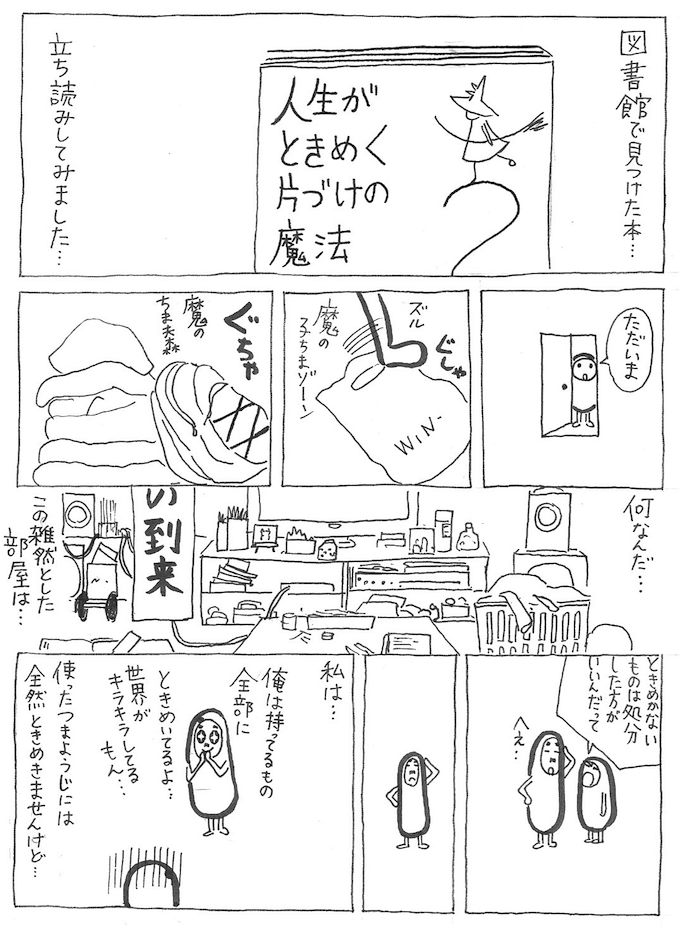 図書館で見つけた本…
人生が
ときめく
片づけの
魔法
立ち読みしてみました…
ただいま
ズル
ぐしゃ
魔の
ちまゾーン
WIN-
ぐちゃ
魔の
ちま森
何なんだ…
い到来
この雑然とした
部屋は…
ときめかない
ものは処分
した方が
いいんだって
へぇ…
私は…
俺は持ってるもの
全部に
ときめいてるよ…
世界が
キラキラしてる
もん…
使ったつまようじには
全然ときめきませんけど…